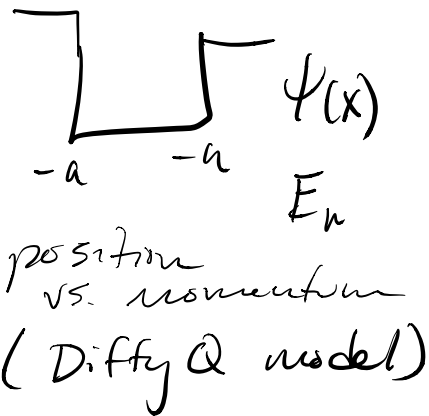 -a -a
ψ(x)
En
position
vs. momentum
(Diffy Q model)